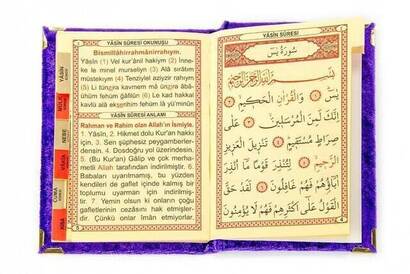 YÂSÎN SÛRESİ OKUNUŞU
Bismillâhirrahmânirrahîm.
Yâsîn (1) Vel kur'ânil hakiym (2) İnne-
ke le minel murseliyn (3) Alâ sırâtım
müstekıym (4) Tenziylel aziyzir rahıym
(5) Li tünzıra kavmem mâ ünzıra âbâ-
ühüm fehüm ğâfilûn (6) Le kad hakkal
kavlü alâ ekserihim fehüm lâ yü'minûn
YÂSÎN SÛRESİ ANLAMI
Rahman ve Rahim olan Allah'ın ismiyle.
1. Yâsîn, 2. Hikmet dolu Kur'an hakkı
için, 3. Sen şüphesiz peygamberler-
densin. 4. Dosdoğru yol üzerindesin.
5. (Bu Kur'an) Gâlip ve çok merha-
metli Allah tarafından indirilmiştir. 6.
Babaları uyarılmamış, bu yüzden
kendileri de gaflet içinde kalmış bir
toplumu uyarman için indirilmiş-
tir. 7 Yemin olsun ki onların çoğu
gafletlerinin cezâsını hak etmişler-
dir. Çünkü onlar îmân etmiyorlar.
YÂSÎN
MÜLK
NEBE
CUMA
سُورَةُ يٰسٓ
بِسْمِ اللّٰهِ الرَّحْمٰنِ الرَّحِيمِ
يٰسٓ ﴿١﴾ وَالْقُرْاٰنِ الْحَكِيمِ ﴿٢﴾
اِنَّكَ لَمِنَ الْمُرْسَلِينَ ﴿٣﴾ عَلٰى
صِرَاطٍ مُسْتَقِيمٍ ﴿٤﴾ تَنْزِيلَ الْعَزِيزِ
الرَّحِيمِ ﴿٥﴾ لِتُنْذِرَ قَوْمًا مَٓا اُنْذِرَ
اٰبَٓاؤُهُمْ فَهُمْ غَافِلُونَ ﴿٦﴾ لَقَدْ حَقَّ
الْقَوْلُ عَلٰٓى اَكْثَرِهِمْ فَهُمْ لَا يُؤْمِنُونَ